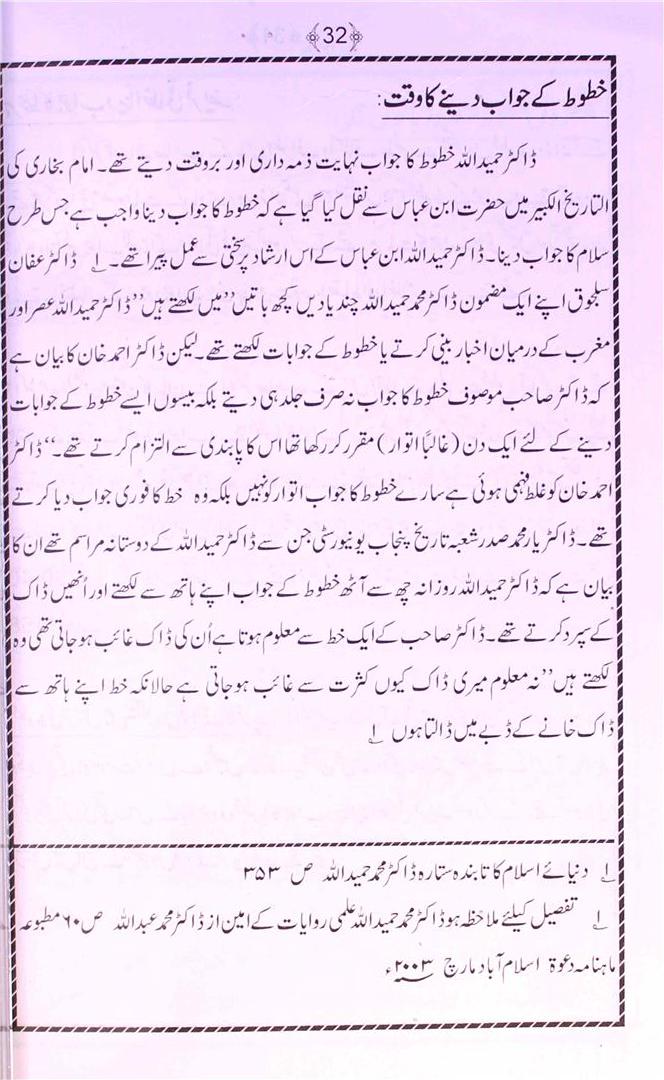 ﴾32﴿
خطوط کے جواب دینے کا وقت:
ڈاکٹر حمید اللہ خطوط کا جواب نہایت ذمہ داری اور بروقت دیتے تھے۔ امام بخاری کی
التاریخ الکبیر میں حضرت ابن عباس سے نقل کیا گیا ہے کہ خطوط کا جواب دینا واجب ہے جس طرح
سلام کا جواب دینا۔ ڈاکٹر حمید اللہ ابن عباس کے اس ارشاد پر سختی سے عمل پیرا تھے۔ ۱؎ ڈاکٹر عفان
سلجوق اپنے ایک مضمون ڈاکٹر محمد حمید اللہ چند یادیں کچھ باتیں’’میں لکھتے ہیں’’ڈاکٹر حمید اللہ عصر اور
مغرب کے درمیان اخبار بینی کرتے یا خطوط کے جوابات لکھتے تھے۔ لیکن ڈاکٹر احمد خان کا بیان ہے
کہ ڈاکٹر صاحب موصوف خطوط کا جواب نہ صرف جلد ہی دیتے بلکہ بیسوں ایسے خطوط کے جوابات
دینے کے لئے ایک دن (غالبًا اتوار) مقرر کر رکھا تھا اس کا پابندی سے التزام کرتے تھے۔‘‘ ڈاکٹر
احمد خان کو غلط فہمی ہوئی ہے سارے خطوط کا جواب اتوار کو نہیں بلکہ وہ خط کا فوری جواب دیا کرتے
تھے۔ ڈاکٹر یار محمد صدر شعبہ تاریخ پنجاب یونیورسٹی جن سے ڈاکٹر حمید اللہ کے دوستانہ مراسم تھے ان کا
بیان ہے کہ ڈاکٹر حمید اللہ روزانہ چھ سے آٹھ خطوط کے جواب اپنے ہاتھ سے لکھتے اور اُنھیں ڈاک
کے سپرد کرتے تھے۔ ڈاکٹر صاحب کے ایک خط سے معلوم ہوتا ہے اُن کی ڈاک غائب ہو جاتی تھی وہ
لکھتے ہیں’’نہ معلوم میری ڈاک کیوں کثرت سے غائب ہو جاتی ہے حالانکہ خط اپنے ہاتھ سے
ڈاک خانے کے ڈبے میں ڈالتا ہوں ۱؎
۱؎ دنیائے اسلام کا تابندہ ستارہ ڈاکٹر محمد حمید اللہ ص ۳۵۳
۱؎ تفصیل کیلئے ملاحظہ ہو ڈاکٹر محمد حمید اللہ علمی روایات کے امین از ڈاکٹر محمد عبد اللہ ص ۶۰ مطبوعہ
ماہنامہ دعوۃ اسلام آباد مارچ ۲۰۰۳ء